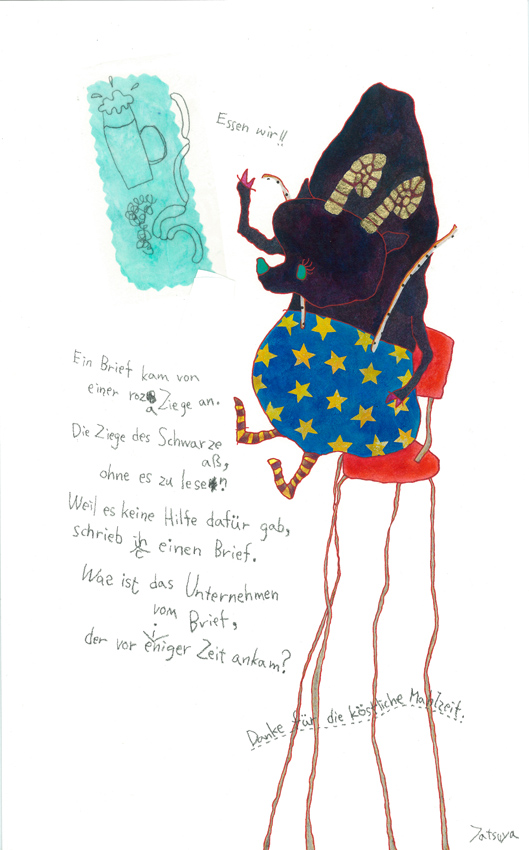 Essen wir!!
Ein Brief kam von
einer rosa Ziege an.
Die Ziege des Schwarze
aß,
ohne es zu lesen?
Weil es keine Hilfe dafür gab,
schrieb ich einen Brief.
Was ist das Unternehmen
vom Brief,
der vor einiger Zeit ankam?
Danke für die köstliche Mahlzeit.
Tatsuya